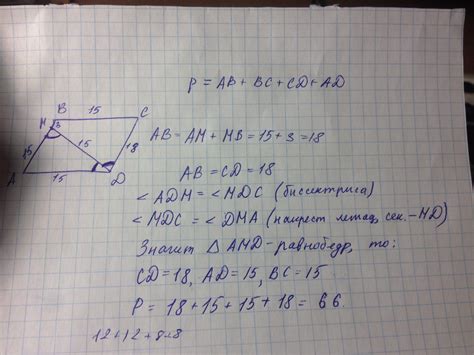 P = AB + BC + CD + AD
B 15 C
M 3
15 15 18
A 15 D
AB = AM + MB = 15 + 3 = 18
AB = CD = 18
< ADM = < MDC (биссектриса)
< MDC = < DMA (накрест лежащ, сек. - MD)
Значит △ AMD - равнобедр, то:
CD = 18, AD = 15, BC = 15
P = 18 + 15 + 15 + 18 = 66.
12 + 12 + 8 + 8